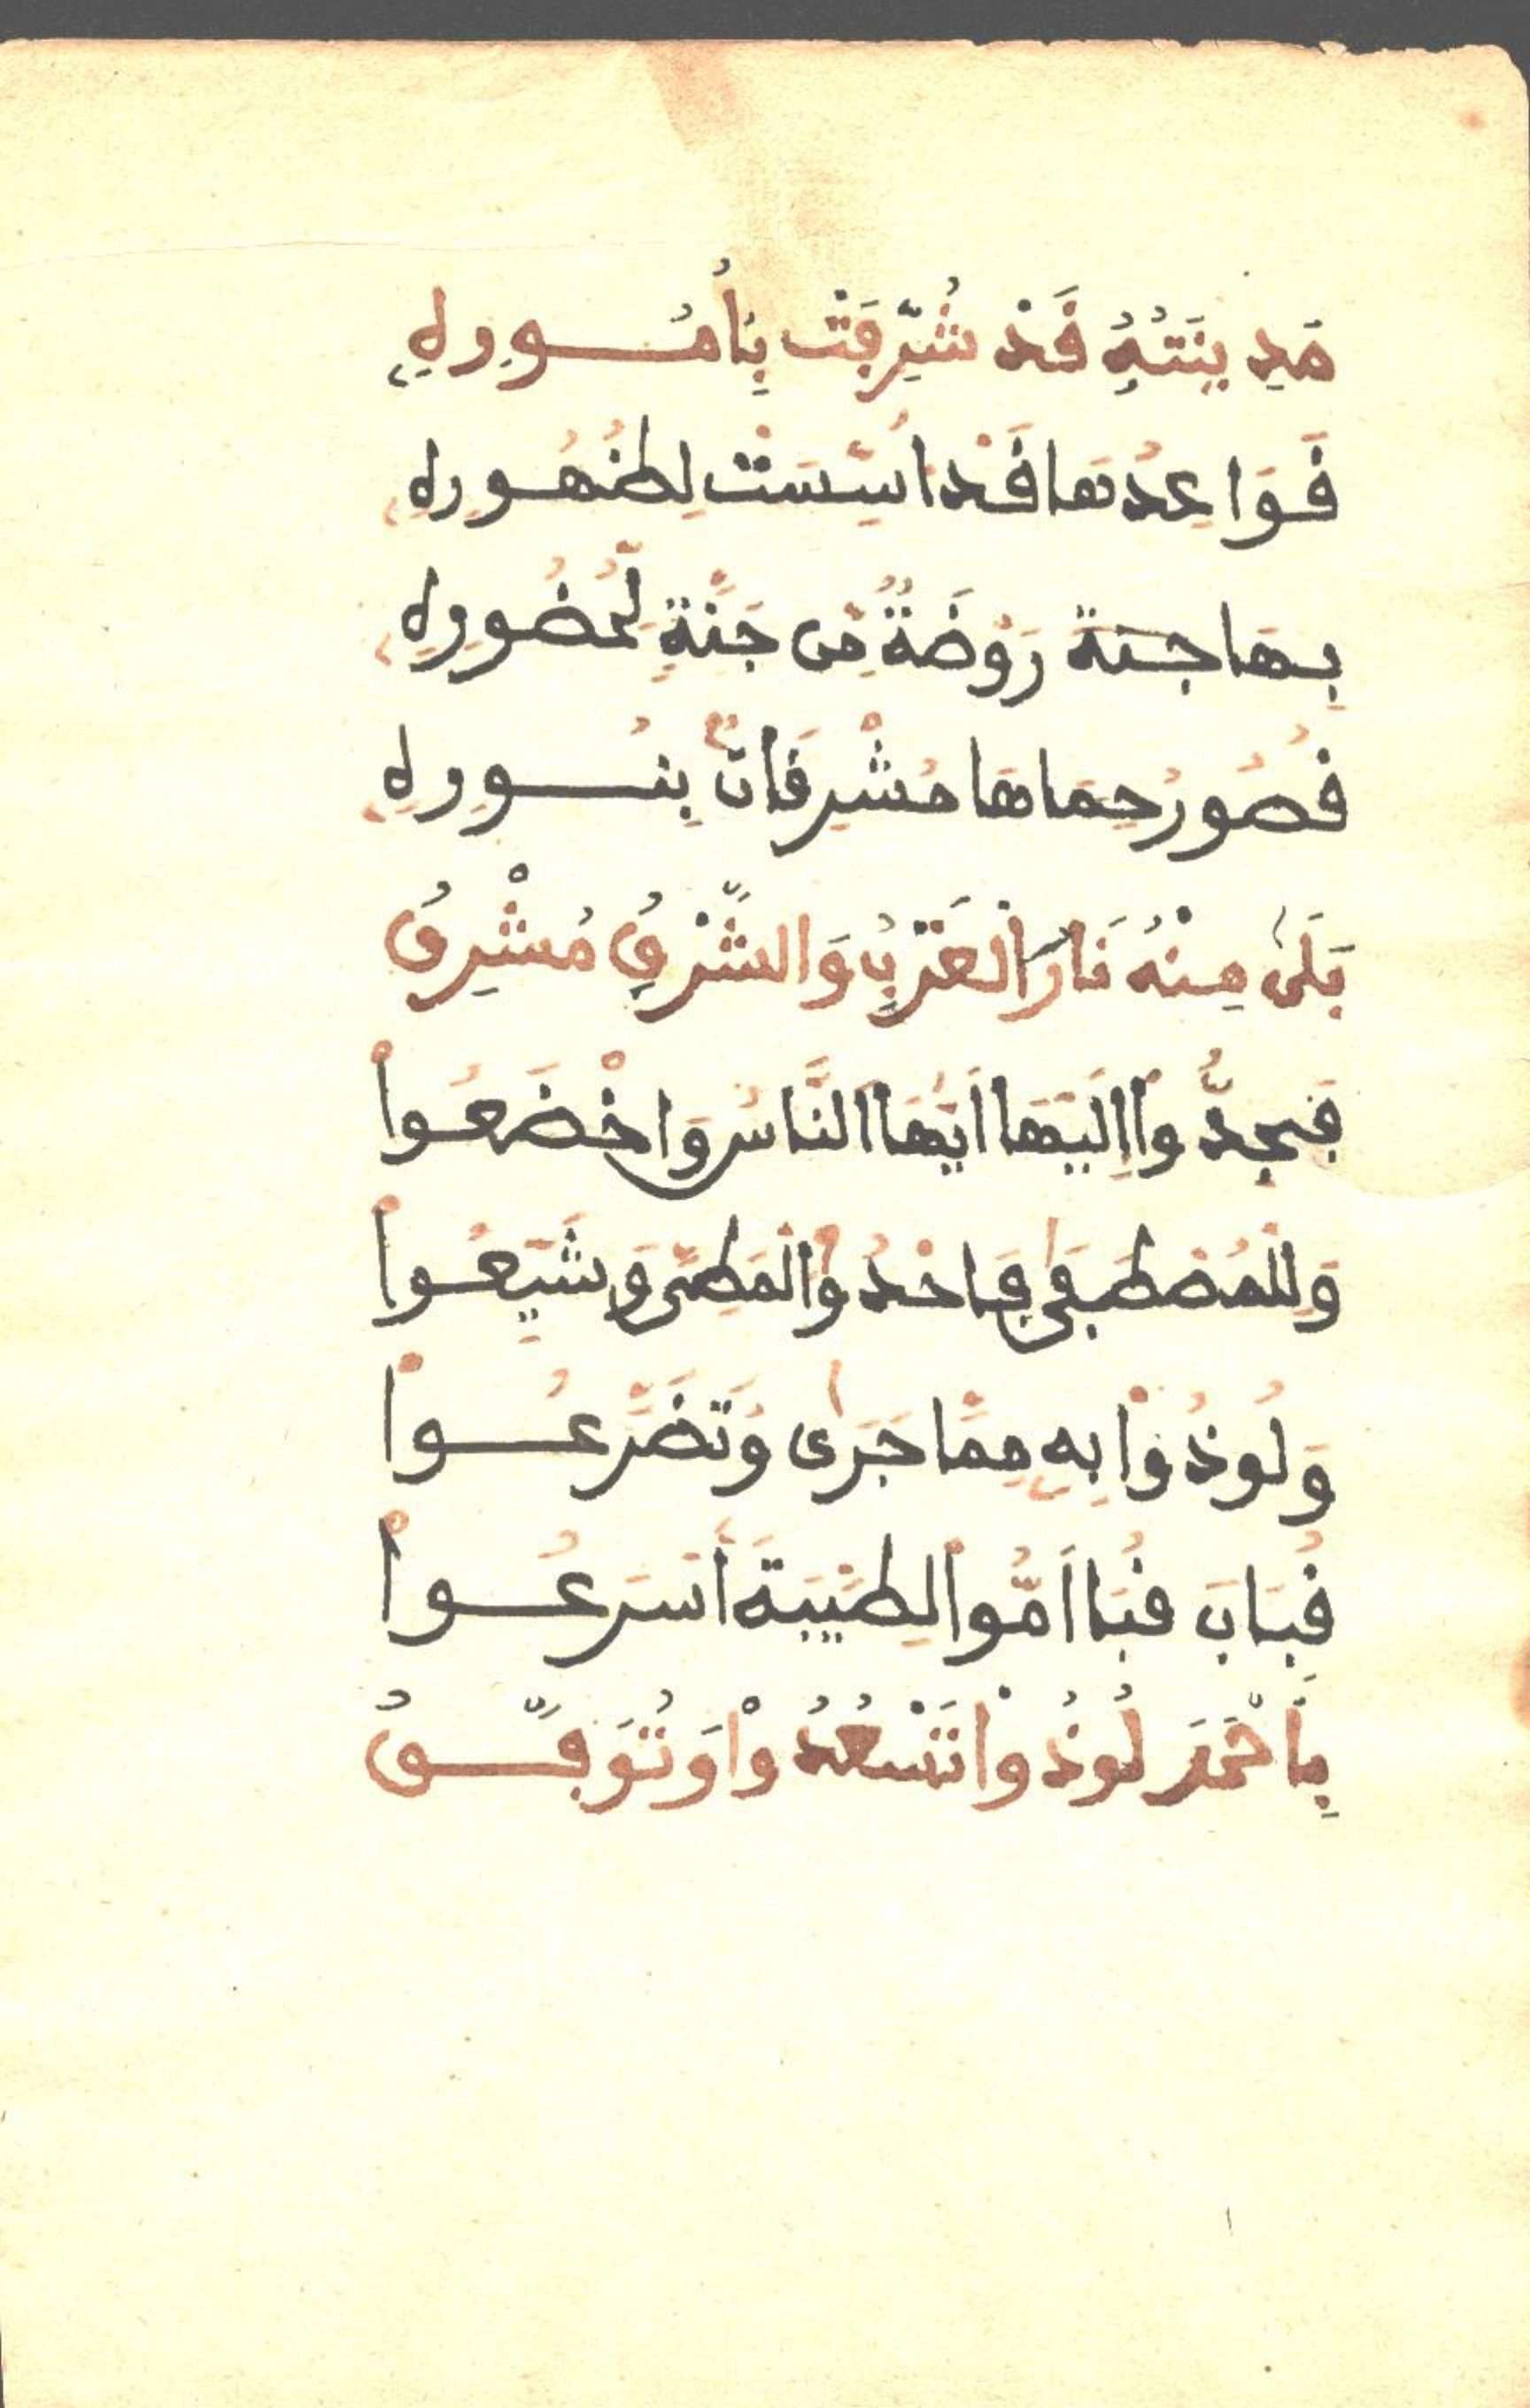 مَدِينَتُهُ قَدْ شُرِّفَتْ بِأُمُورِهِ
قَوَاعِدُهَا قَدْ اُسِّسَتْ لِظُهُورِهِ
بِهَا جنة رَوْضَةٌ مِن جَنَّةٍ لِّحُضُورِهِ
قُصُورُ حِمَاهَا مُشْرِقَاتٌ بِنُورِهِ
بَلَى مِنْهُ نَارَ الْغَرْبِ وَالشَّرْقِ مُشْرِقُ
فَجِدُّواْ اِلَيْهَا اَيُّهَا النَّاسُ وَاخْضَعُواْ
وَلِلْمُصْطَفَى فَاحْدُواْ الْمَطِيَّ وَشَيِّعُواْ
وَلُوذُواْ بِهِ مِمَّا جَرَى وَتَضَرَّعُواْ
قِبَابَ قُبَا اَمُّواْ لِطَيْبَةَ أَسْرَعُواْ
بِأَحْمَدَ لُوذُواْ تَسْعُدُواْ وَتُوَفَّقُ